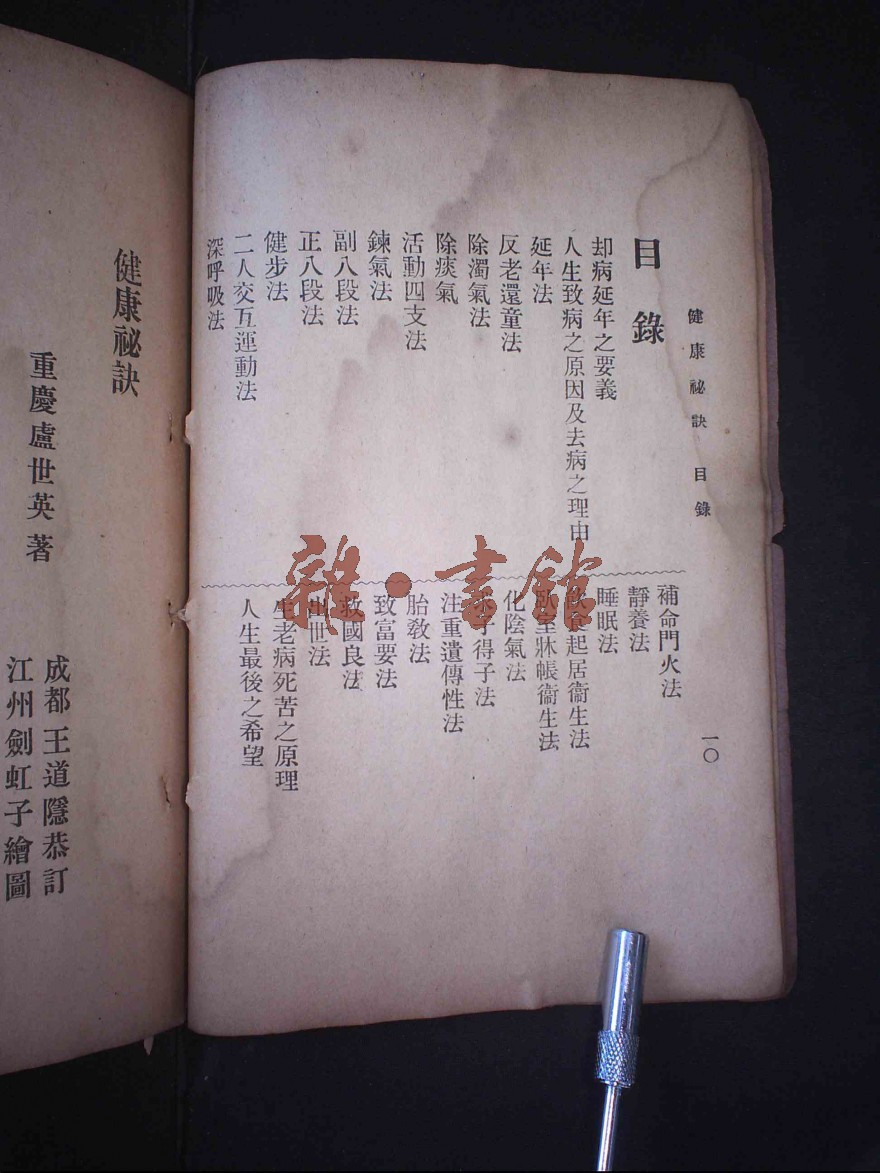 健康祕訣 目錄
一〇
目錄
却病延年之要義
人生致病之原因及去病之理由
延年法
反老還童法
除濁氣法
除痰氣
活動四支法
鍊氣法
副八段法
正八段法
健步法
二人交互運動法
深呼吸法
補命門火法
靜養法
睡眠法
食起居衞生法
臥室牀帳衞生法
化陰氣法
子得子法
注重遺傳性法
胎敎法
致富要法
救國良法
出世法
生老病死苦之原理
人生最後之希望
健康祕訣
重慶盧世英著
成都王道隱恭訂
江州劍虹子繪圖
雜·書館